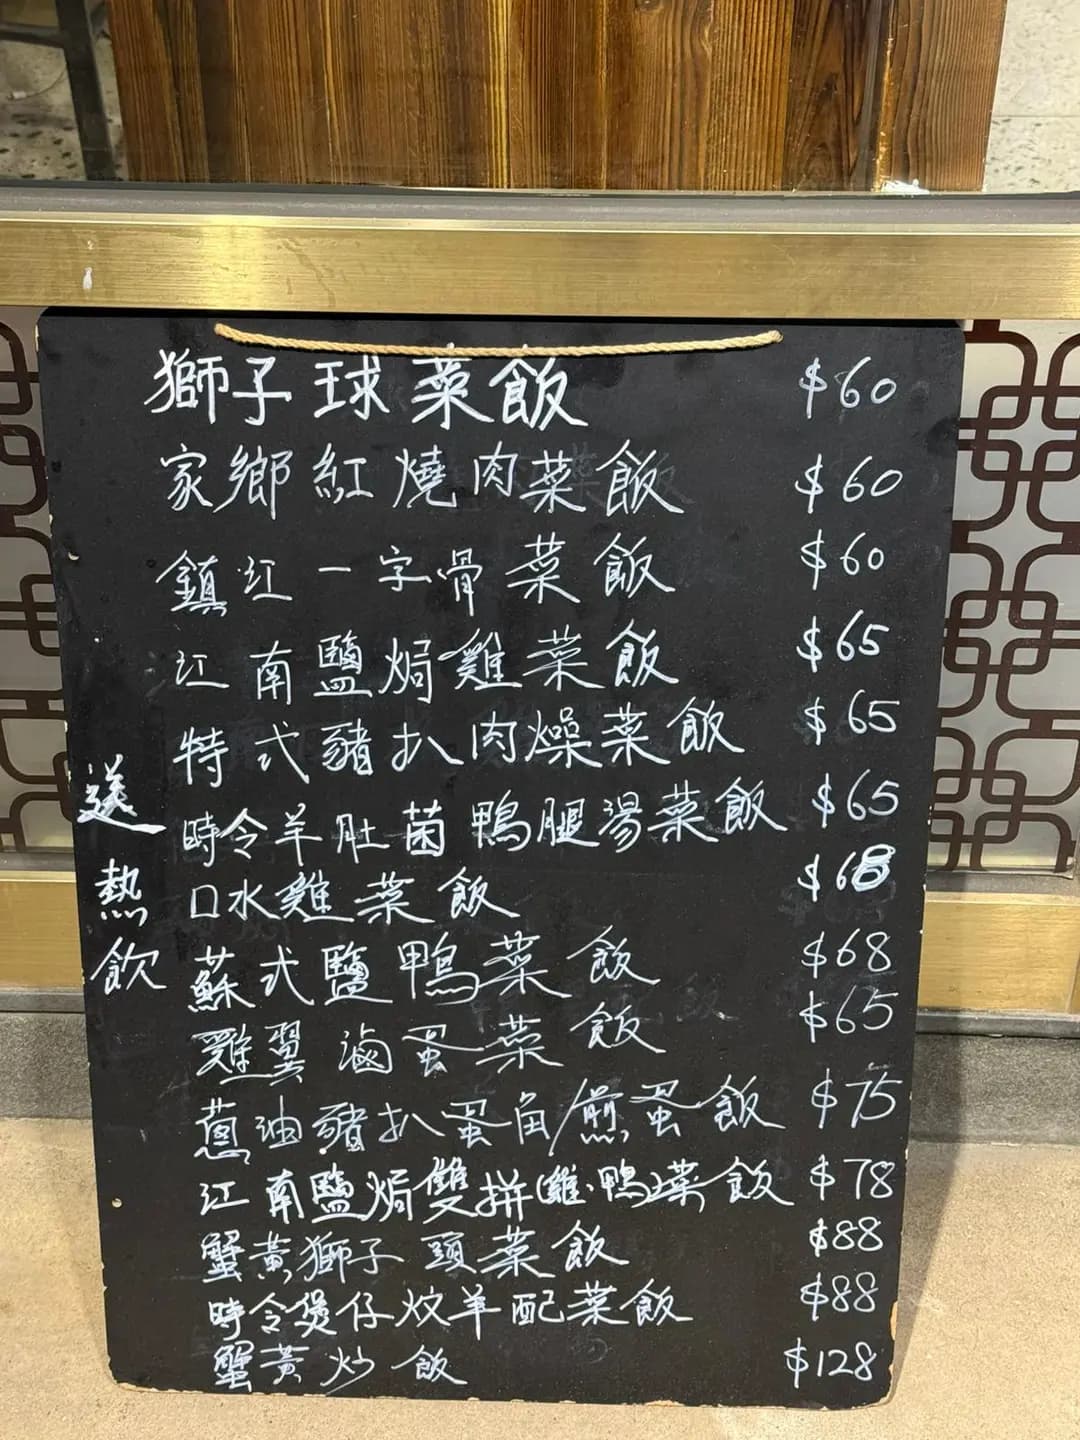 獅子球菜飯 $60
家鄉紅燒肉菜飯 $60
鎮江一字骨菜飯 $60
江南鹽焗雞菜飯 $65
特式豬扒肉燥菜飯 $65
時令羊肚菌鴨腿湯菜飯 $65
口水雞菜飯 $68
蘇式鹽鴨菜飯 $68
雞翼滷蛋菜飯 $65
蔥油豬扒蛋角/煎蛋飯 $75
江南鹽焗雙拼(雞、鴨)菜飯 $78
蟹黃獅子頭菜飯 $88
時令煲仔炆羊配菜飯 $88
蟹黃炒飯 $128
送熱飲